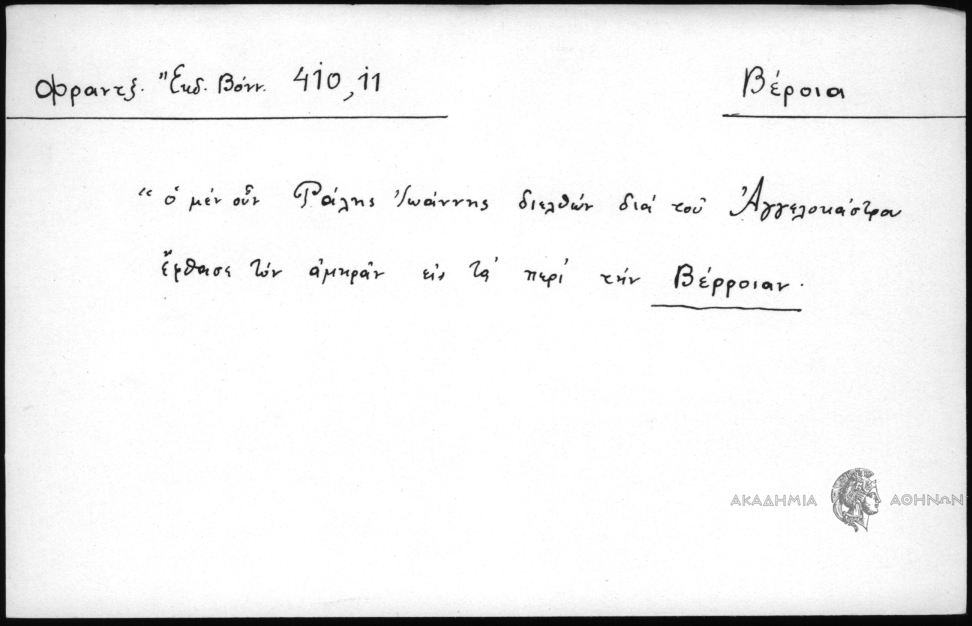 Φραντζ. Ἔκδ. Βόνν. 410,11
Βέροια
“ ὁ μέν οὖν Ράλης Ἰωάννης διελθών διά τοῦ Ἀγγελοκάστρου
ἔφθασε τόν ἀμηρᾶν εἰς τά περί τήν Βέρροιαν.
ΑΚΑΔΗΜΙΑ ΑΘΗΝΩΝ